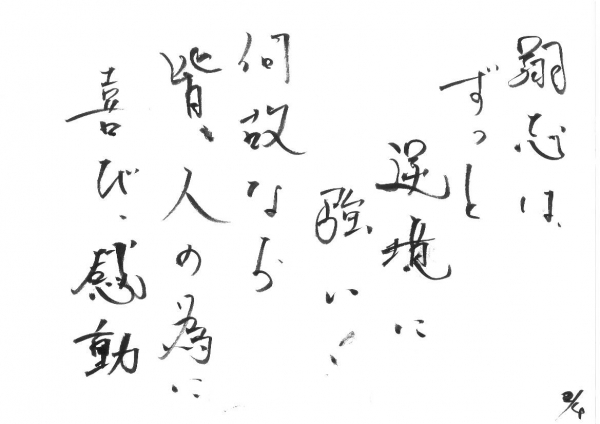 翔志は、
ずっと
逆境に
強い！
何故なら
皆、人の為に
喜び、感動
2/4